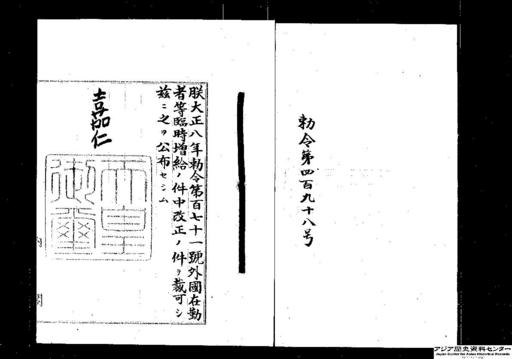 勅令第四百九十八号
朕大正八年勅令第百七十一號外國在勤
者等臨時増給ノ件中改正ノ件ヲ裁可シ
茲ニ之ヲ公布セシム
嘉仁
天皇
御璽
内閣
アジア歴史資料センター
Japan Center for Asian Historical Records